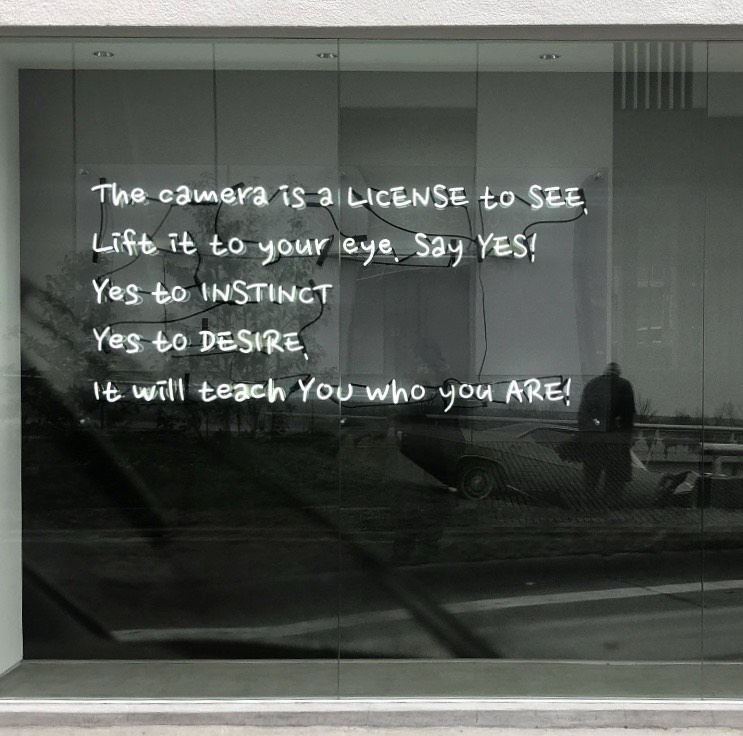 The camera is a LICENSE to SEE,
Lift it to your eye, Say YES!
Yes to INSTINCT
Yes to DESIRE,
It will teach YOU who you ARE!